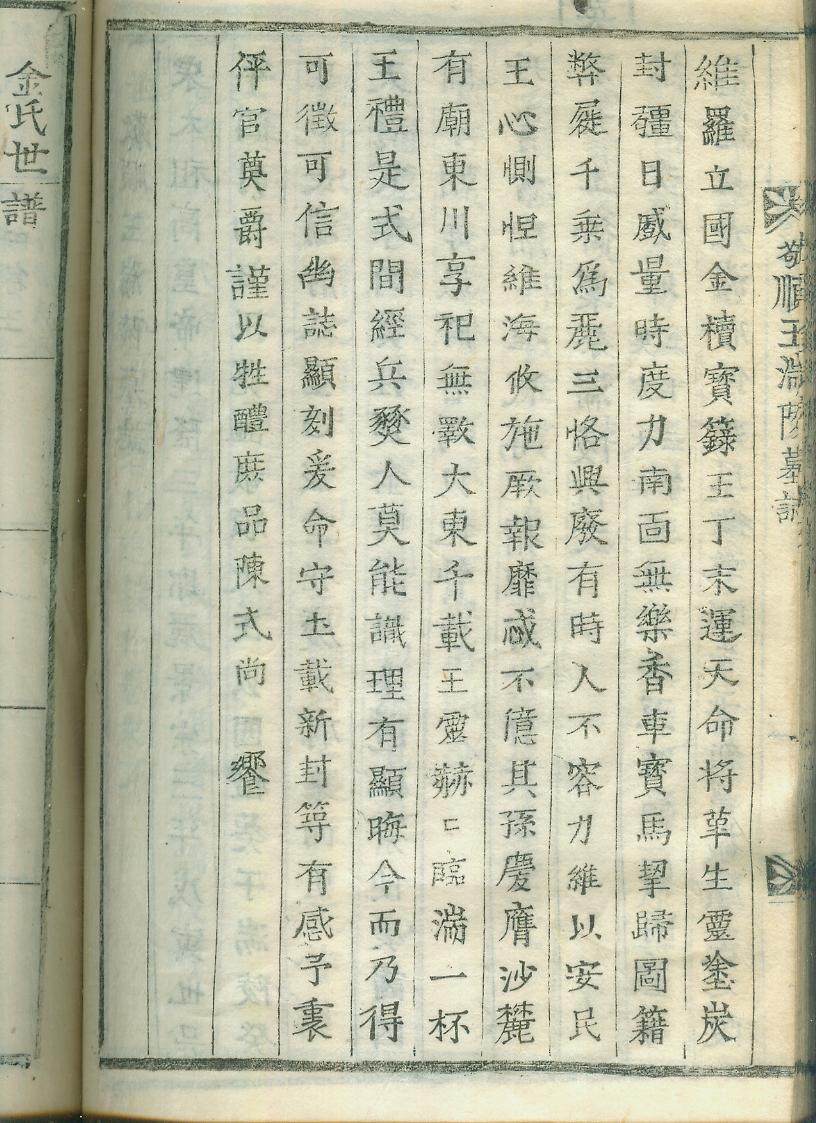 敬順王陵墓誌
維羅立國金櫝寶籙王丁末運天命将革生靈塗炭
封疆日蹙量時度力南面無樂香車寶馬挈歸圖籍
弊屣千乗爲麗三恪興廢有時人不容力維以安民
王心惻怛維海攸施厥報靡忒不億其孫慶膺沙麓
有廟東川享祀無斁大東千載王靈赫〻臨湍一杯
王禮是式間經兵燹人莫能識理有顯晦今而乃得
可徵可信幽誌顯刻爰命守土載新封等有感予裏
伻官奠爵謹以牲醴庶品陳式尚 饗
金氏世譜